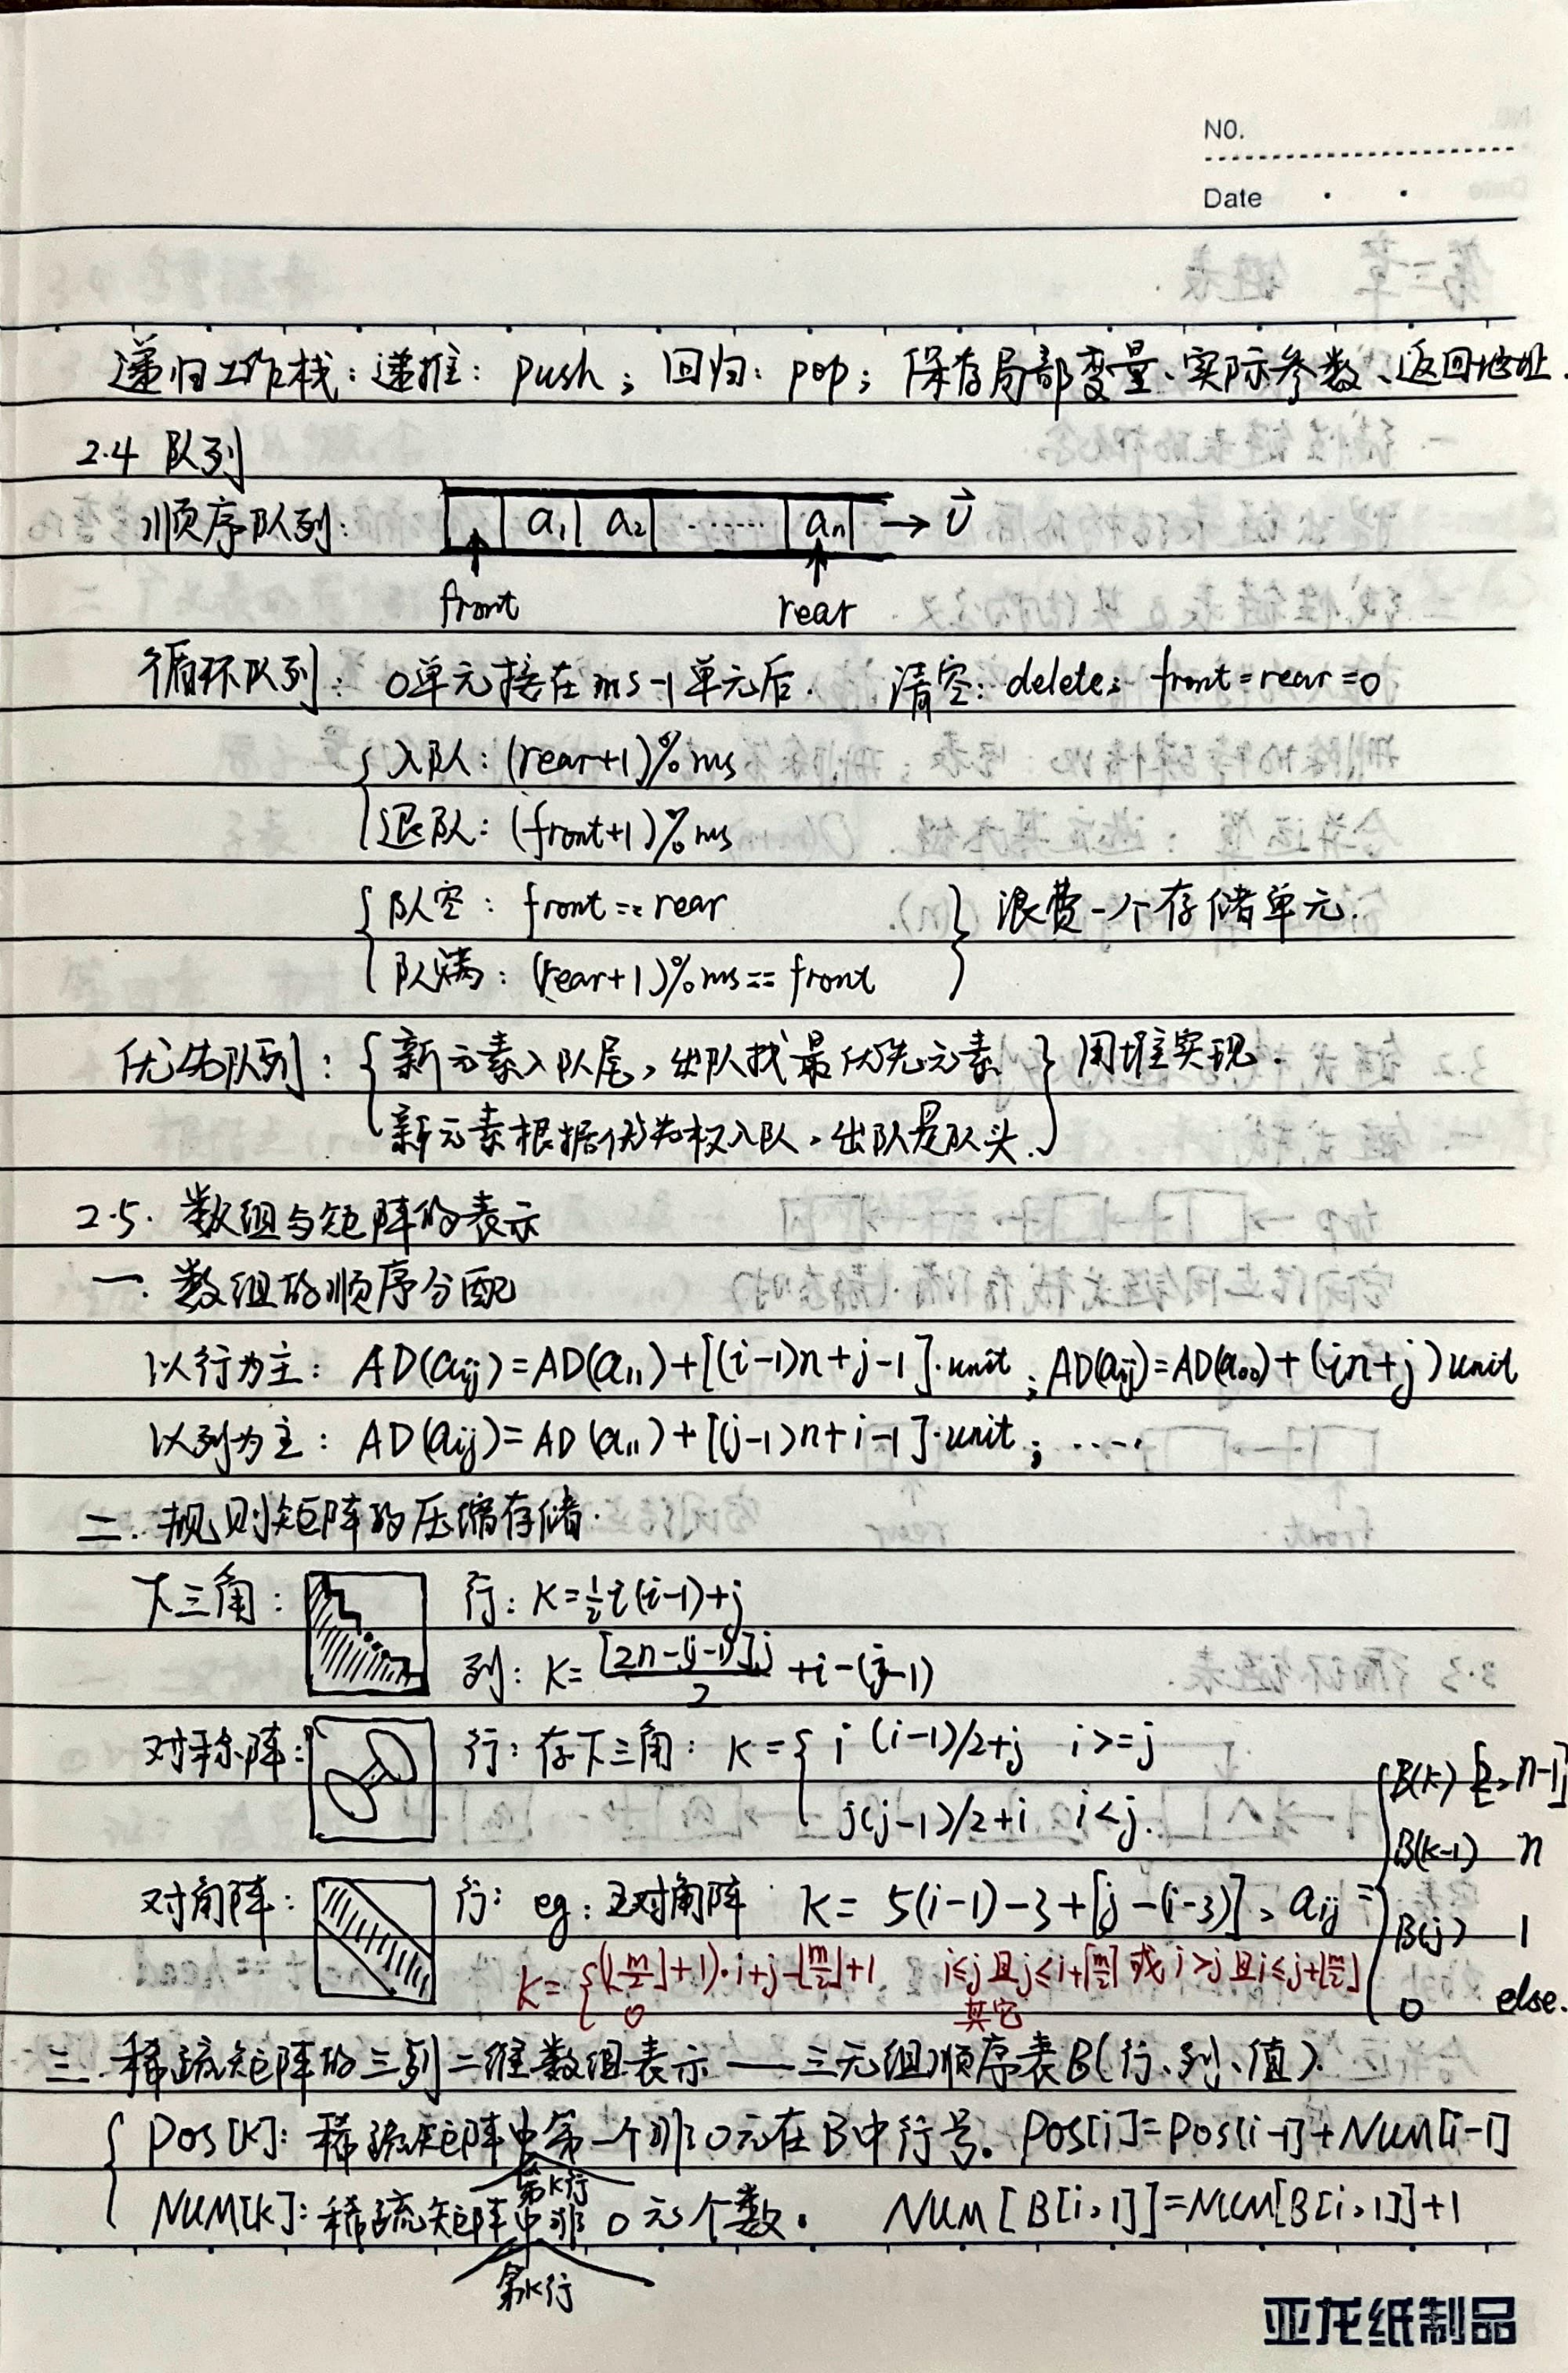 NO.
Date
递归工作栈：递推：push；回归：pop；保存局部变量、实际参数、返回地址.
2.4 队列
顺序队列： a₁ a₂ ...... aₙ → v⃗
front rear
循环队列：0单元接在ms-1单元后. 清空：delete; front=rear=0
入队：(rear+1)%ms
退队：(front+1)%ms
队空：front==rear
队满：(rear+1)%ms==front
浪费一个存储单元.
优先队列：新元素入队尾，出队找最优先元素
新元素根据优先权入队，出队是队头.
用堆实现.
2.5. 数组与矩阵的表示
一. 数组的顺序分配
以行为主：AD(aij)=AD(a11)+[(i-1)n+j-1]·unit；AD(aij)=AD(a00)+(in+j)unit
以列为主：AD(aij)=AD(a11)+[(j-1)n+i-1]·unit；····
二. 规则矩阵的压缩存储.
下三角： 行：K=½i(i-1)+j
列：K=[2n-(j-1)]j/2+i-(j-1)
对称阵： 行：存下三角：K={ i(i-1)/2+j i>=j
j(j-1)/2+i i<j.
对角阵： 行：eg：对角阵 K=5(i-1)-3+[j-(i-3)]，aij=
B(k) n-1
B(k-1) n
B(j) 1
0 else.
K={(⌊m/2⌋+1)·i+j-⌊m/2⌋+1 i≤j且j≤i+⌊m/2⌋或i>j且i≤j+⌊m/2⌋
0 其它
三. 稀疏矩阵的三列二维数组表示——三元组顺序表B(行、列、值).
Pos[K]：稀疏矩阵中第一个非0元在B中行号。Pos[i]=Pos[i-1]+NUM[i-1]
第K行
NUM[K]：稀疏矩阵中非0元个数。 NUM[B[i,1]]=NUM[B[i,1]]+1
第K行
亚龙纸制品